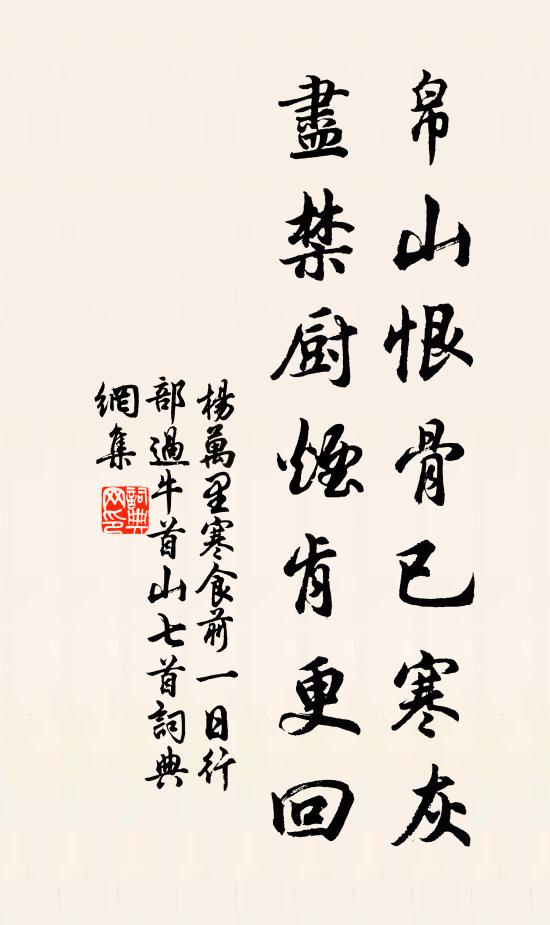 帛山恨骨已寒灰
盡禁厨煙肯更回
楊萬里寒食前一日行
部過牛首山七首詞典
網集
詞典網印